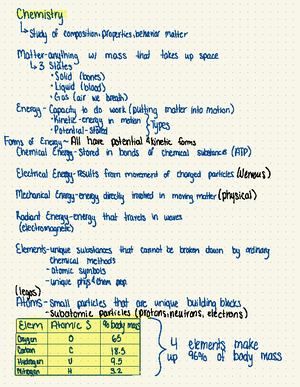 Chemistry
↳ Study of composition, properties, behavior matter
Matter-anything w/ mass that takes up space
↳ 3 States
• Solid (bones)
• Liquid (blood)
• Gas (air we breath)
Energy- Capacity to do work (putting matter into motion)
• Kinetic-energy in motion } Types
• Potential-Stored
Forms of Energy- All have potential & kinetic forms
Chemical Energy-Stored in bonds of chemical substances (ATP)
Electrical Energy-Results from movement of charged particles (Nervous)
Mechanical Energy-energy directly involved in moving matter (physical)
Radiant Energy-energy that travels in waves
(electromagnetic)
Elements-unique substances that cannot be broken down by ordinary
chemical methods
- atomic symbols
- unique phys & chem prop.
(legos)
Atoms-Small particles that are unique building blocks
- subatomic particles (protons, neutrons, electrons)
Elem Atomic S % body mass
Oxygen O 65
Carbon C 18.5
9.5
Nitrogen 3.2
4 elements make
up 96% of body mass